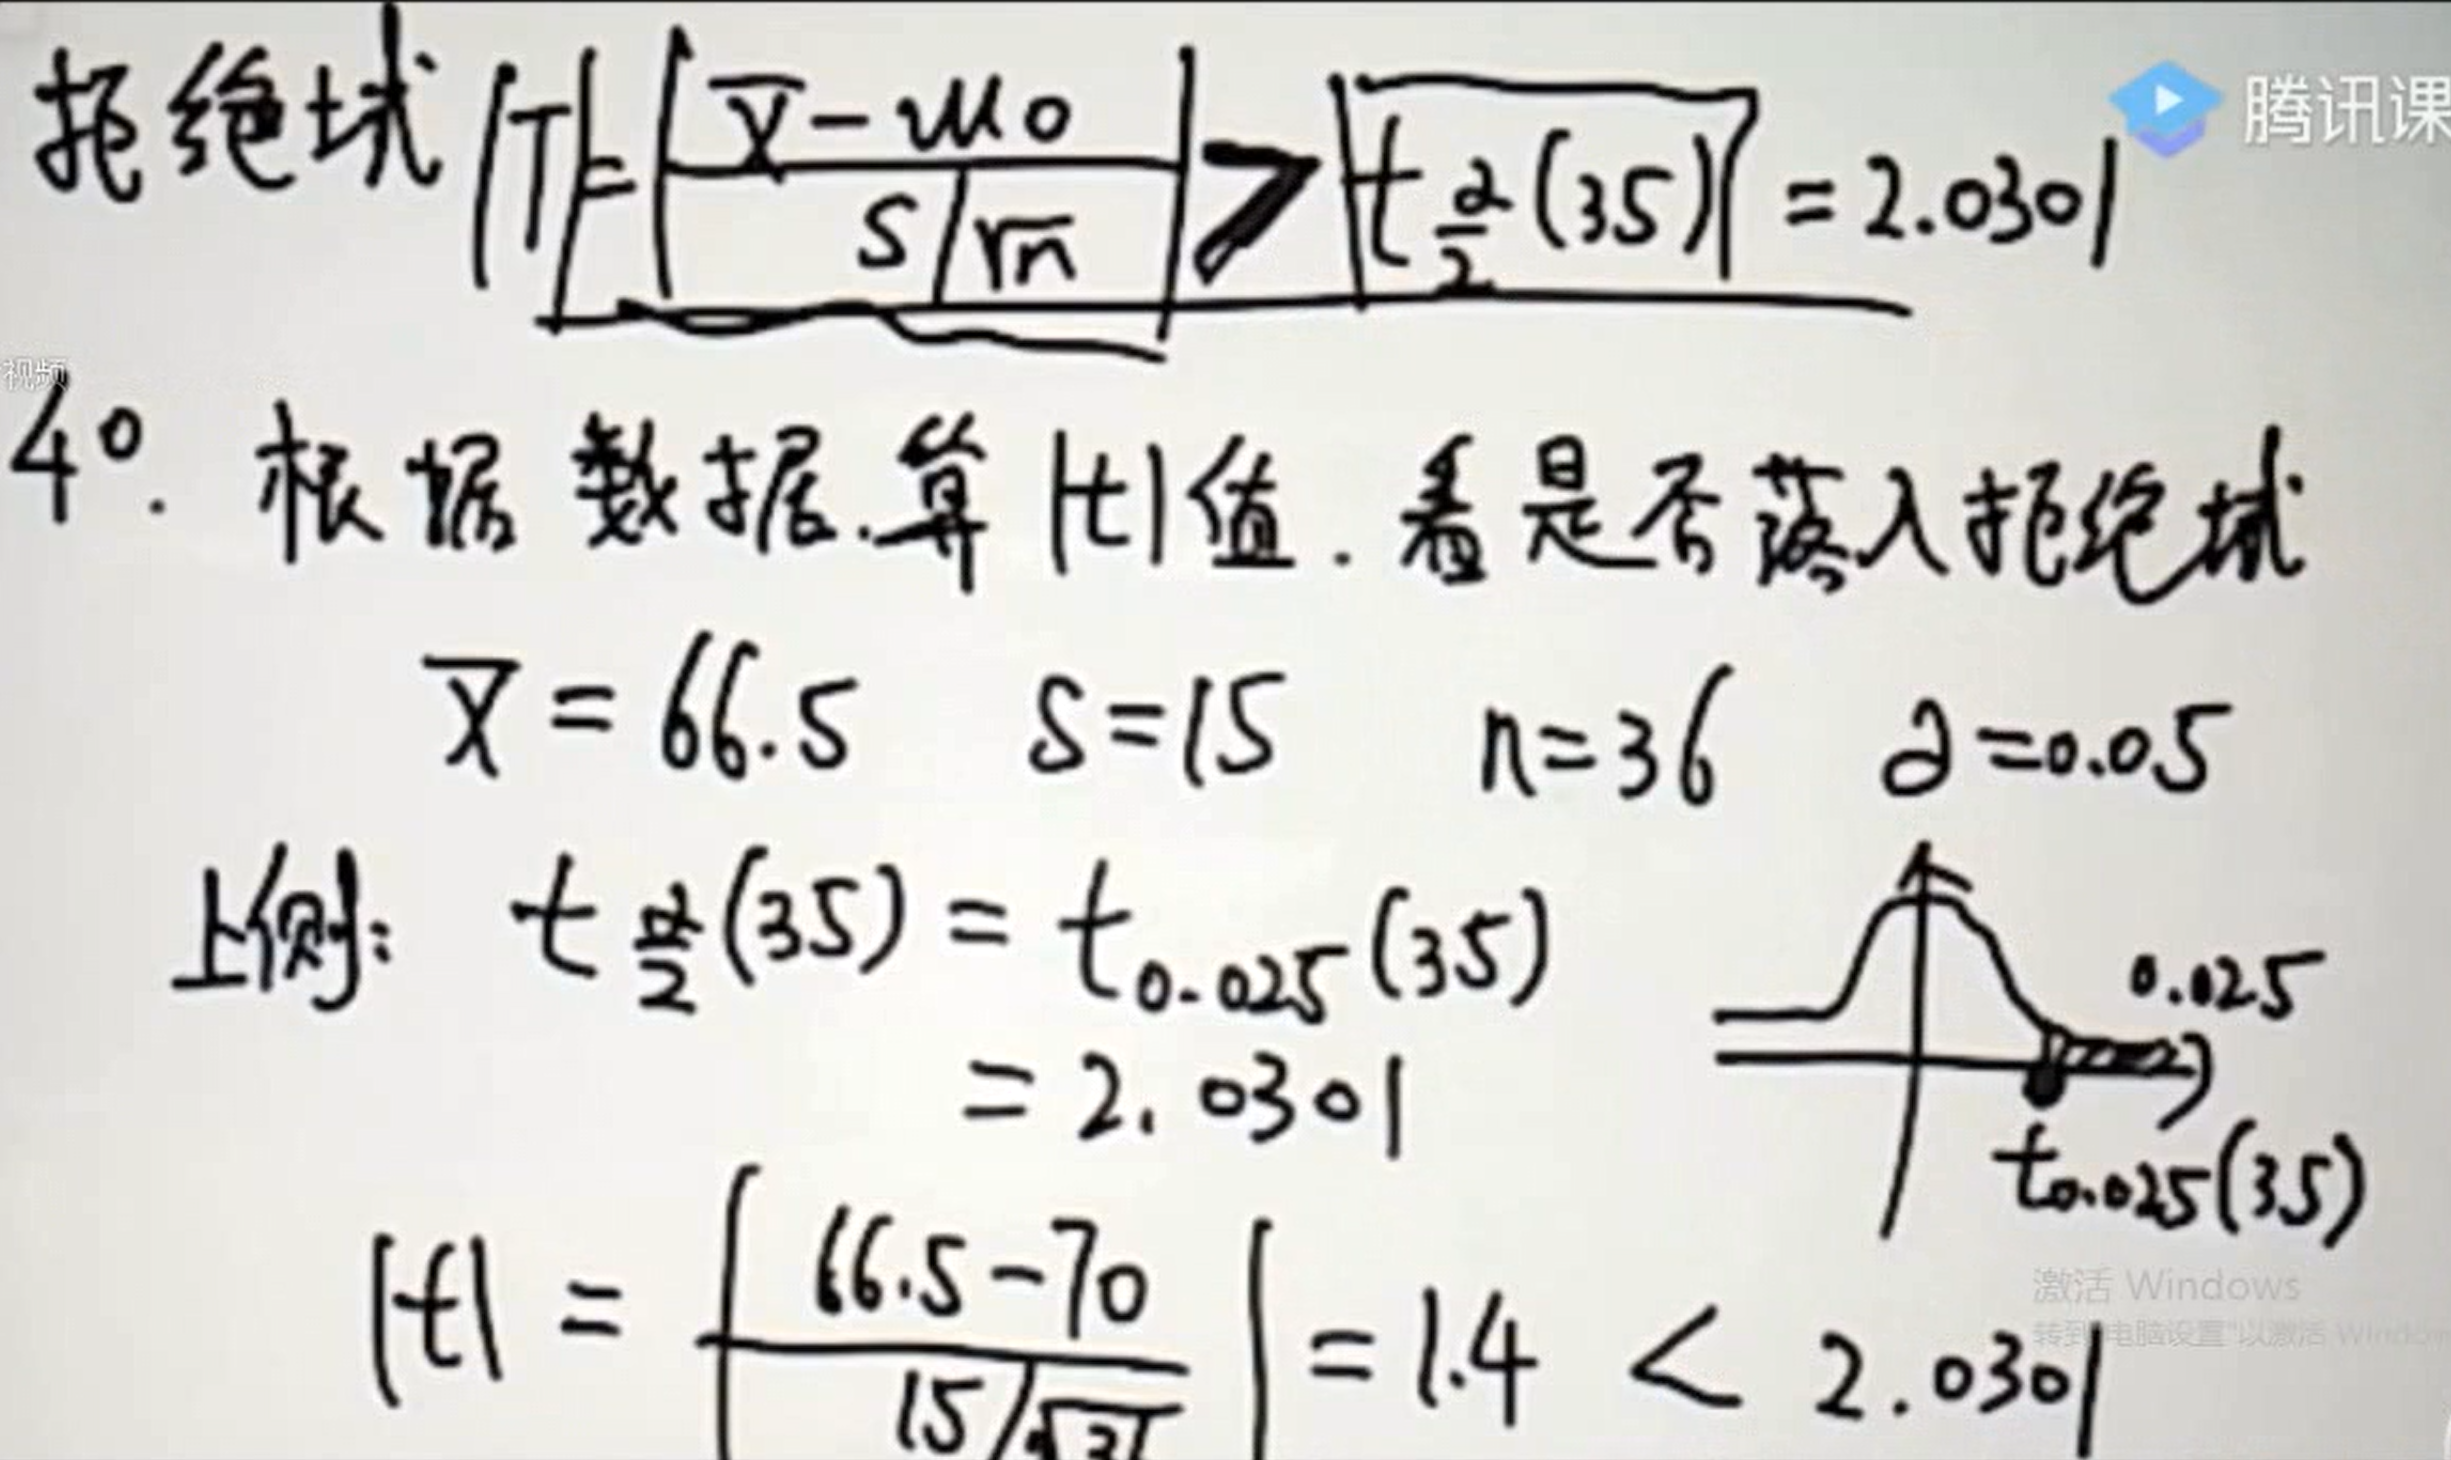 拒绝域 |T| = |(x̄ - μ0) / (S/√n)| > t α/2 (35) = 2.0301
腾讯课
视频
4°. 根据数据.算|t|值.看是否落入拒绝域
x̄ = 66.5 S=15 n=36 α=0.05
上侧: t α/2 (35) = t0.025(35)
= 2.0301
0.025
t0.025(35)
|t| = |(66.5-70) / (15/√3 = 1.4 < 2.0301
激活 Windows
转到"电脑设置"以激活 Window